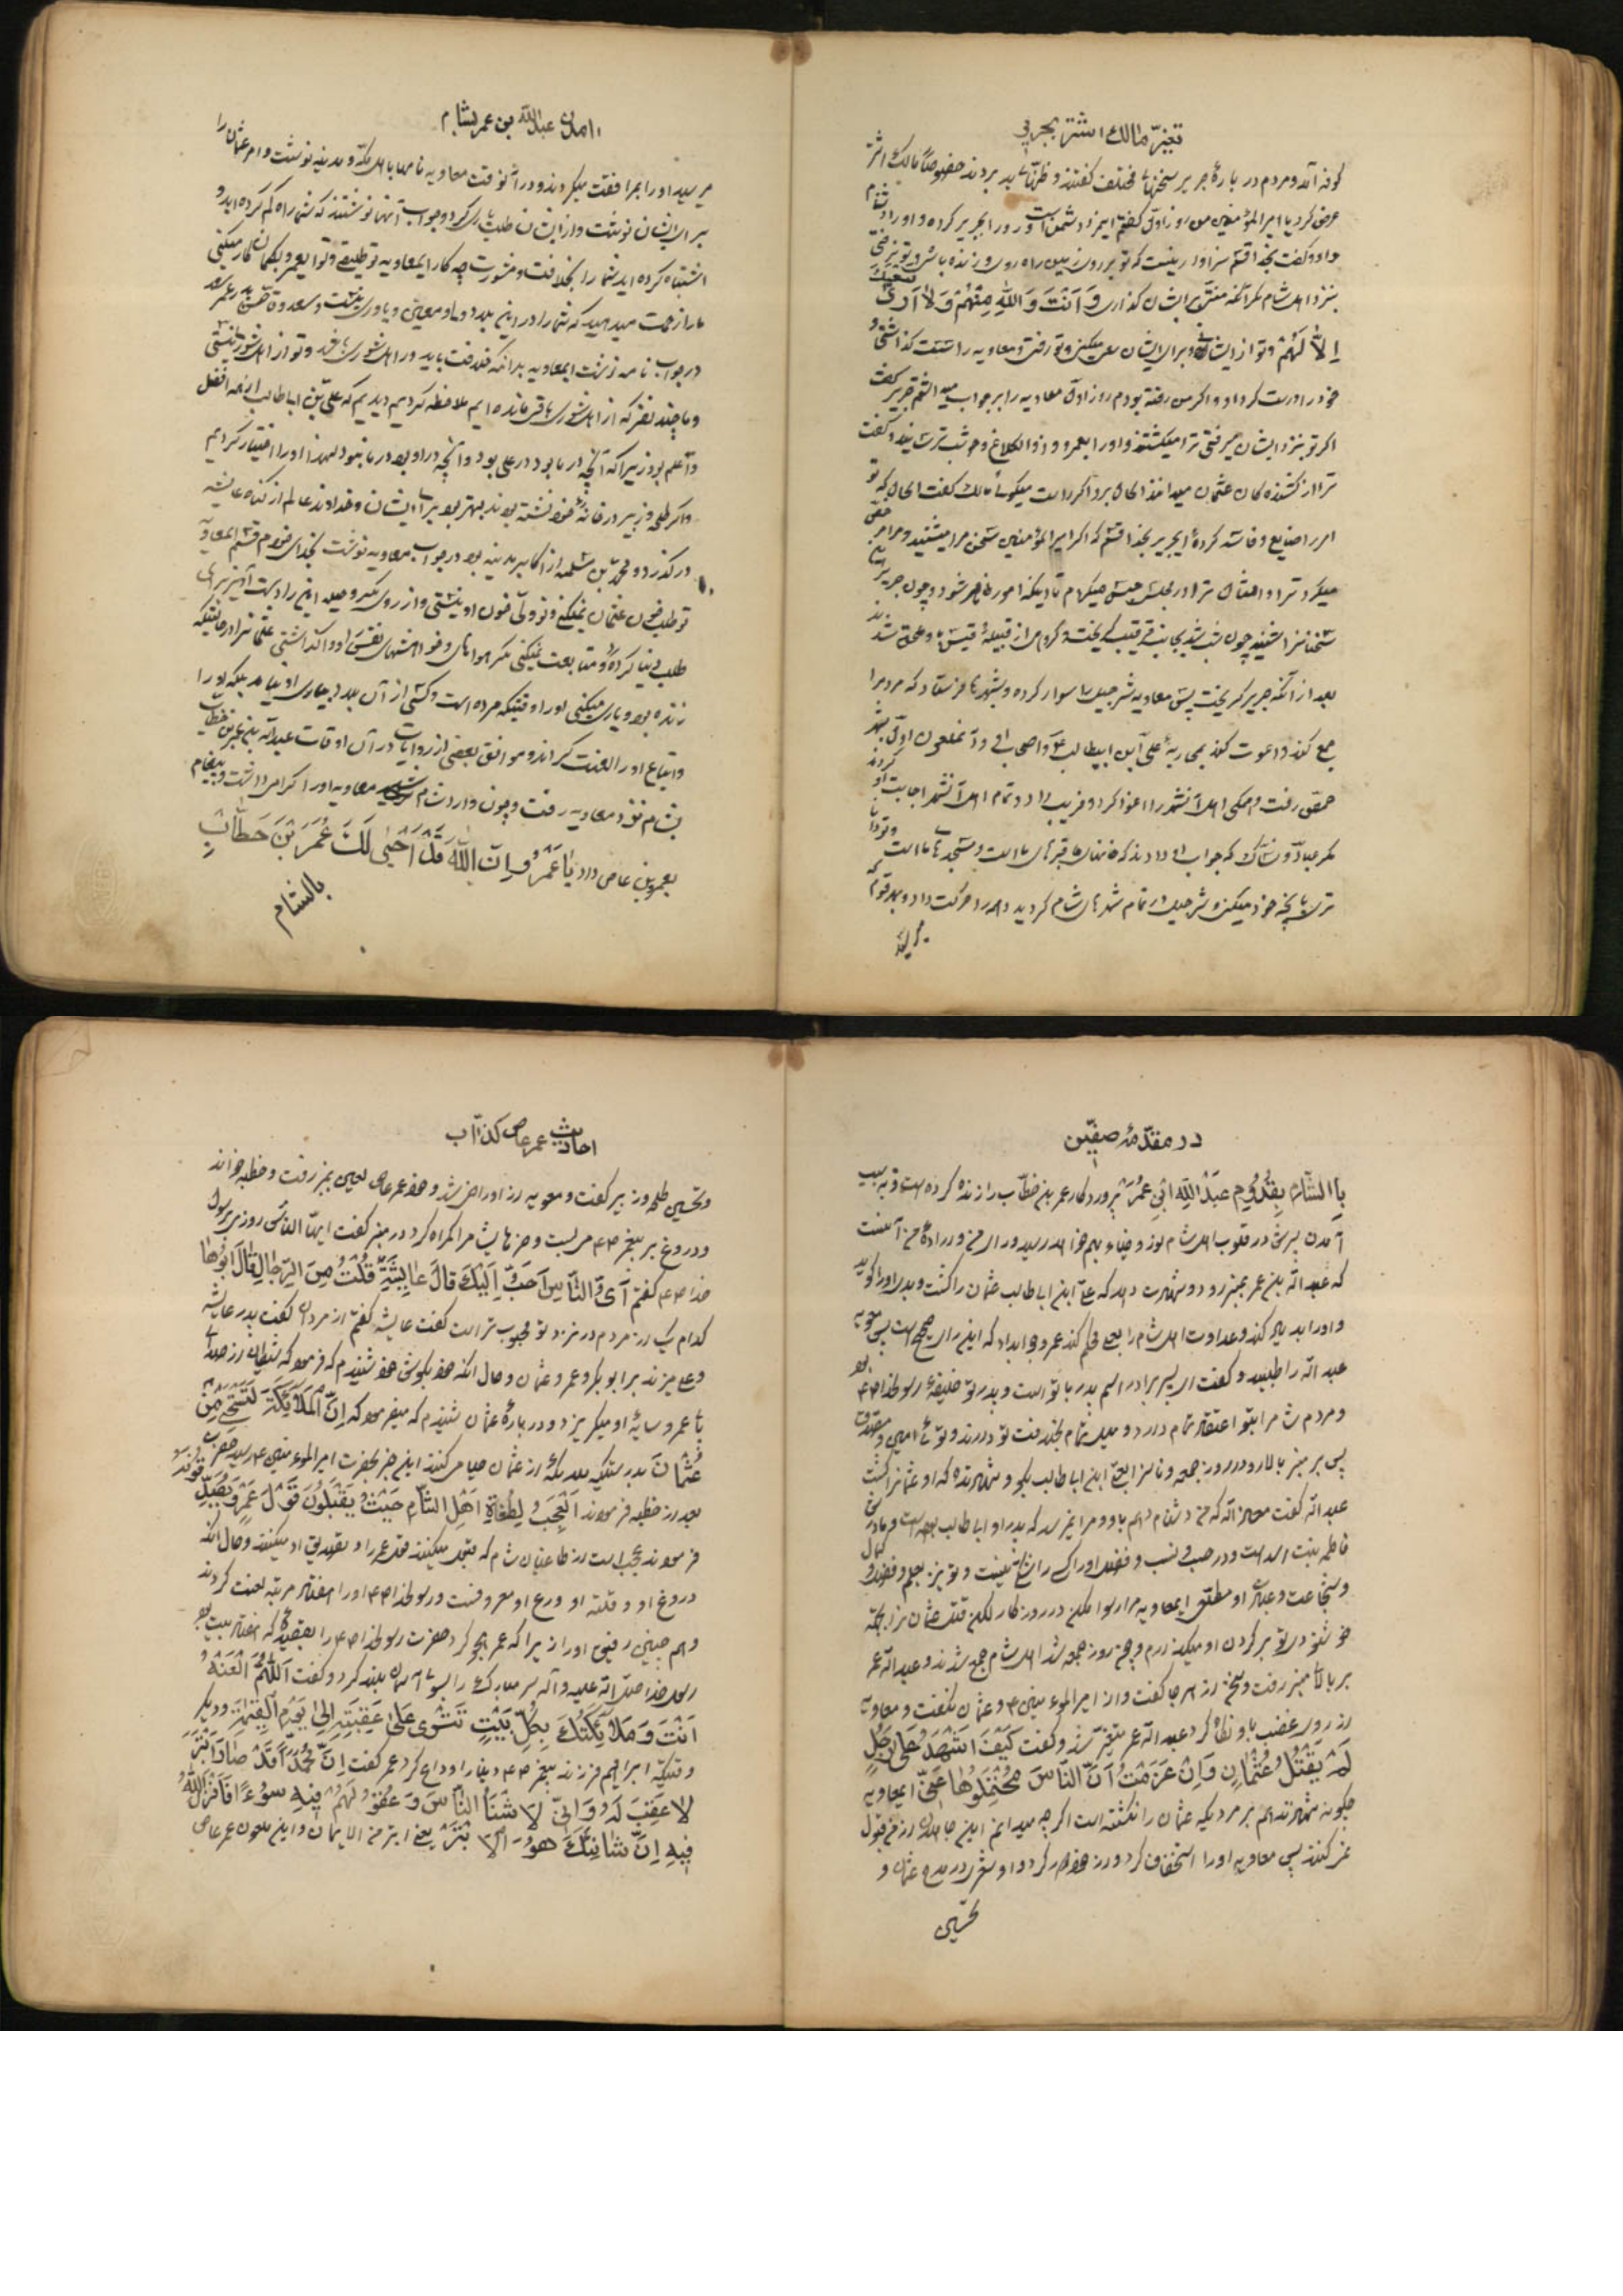 تغیّر مالک اشتر بجریر
کوفه آمد و مردم در بارهٔ جریر سخنها مختلف گفتند و ظنّها بد بردند خصوصاً مالک اشتر
عرض کرد یا امیر المؤمنین من روز اوّل گفتم این مرد دشمن است و رو را بجریر کرده و او را دشنام
داد و گفت بخدا قسم سزاوار نیست که تو بر روی زمین راه روی و زنده باشی و تو نرفتی
بنزد اهل شام مگر آنکه منتی بر ایشان گذاری وَ اَنْتَ وَ اللهِ مِنْهُمْ وَ لا اَریٰ سَعْیَکَ
اِلاّ لَهُمْ و تو از ایشانی و برای ایشان سعی میکنی و تو رفتی و معاویه را سست گذاشتی تا
خود را درست کرد و اگر من رفته بودم روز اوّل معاویه را بر جواب میداشتم جریر گفت
اگر تو بنزد ایشان میرفتی ترا میکشتند و او را بعمرو و ذو الکلاع و حوشب ترسانید و گفت
ترا از کشنده کان عثمان میدانند الحال برو اگر راست میگوئی مالک گفت الحال که تو
امر را ضایع و فاسد کردهٔ ای جریر بخدا قسم که اگر امیر المؤمنین سخن مرا میشنید و مرا مرخص
میکرد ترا و امثال ترا در مجلس حبس میکردم تا اینکه امور ظاهر شود و چون جریر این
سخنان را شنید چون شب شد بجانب قرقیسا گریخت و گروهی از قبیلهٔ قیس باو ملحق شدند
بعد از آنکه جریر گریخت پیش معاویه شرحبیل را سوار کرده و بشهرها فرستاد که مردم را
جمع کند و دعوت کند بمحاربهٔ علی ابن ابیطالب ع و اصحاب او و آنملعون اوّل بشهر
حمص رفت و همگی اهل آنشهر را اغوا کرد و فریب داد و تمام اهل آنشهر اجابت او کردند
مگر عبّاد و نسّاک که جواب او دادند که خانهای ما قبرهای ما است و مسجدهای ما است و تو دانا
تری بآنچه خود میکنی و شرحبیل در تمام شهرهای شام گردید و همه را حرکت داد و بهر قومی که
میرسید

آمدن عبدالله بن عمر بشام
میرسید او را بمرافقت میکردند و در آنوقت معاویه نامها باهل مکه و مدینه نوشت و امر عثمان را
برای ایشان نوشت و از ایشان طلب یاری کرد و جواب آنها نوشتند که شما راه گم کرده اید و
اشتباه کرده اید شما را بخلافت و مشورت چه کار ای معاویه تو طلیقی و تو ای عمرو بگمان کار میکنی
ما را زحمت میدهید که شما را در این بلد دو یاور معین و یاوری نیست و سعد وقاص پدر عمر سعد
در جواب نامه نوشت ای معاویه بدانکه خلافت باید در اهل شوری باشد و تو از اهل شوری نیستی
و ما چند نفر که از اهل شوری باقی مانده ایم ملاحظه کردیم دیدیم که علی بن ابیطالب از همه افضل
و اعلم بود زیرا که آنچه در ما بود در علی بود و آنچه در او بود در ما نبود لهذا او را اختیار کردیم
و اگر طلحه و زبیر در خانهٔ خود نشسته بودند بهتر بود برای ایشان و خداوند عالم از گناه عایشه
در گذرد و محمد بن مسلمه از اکابر مدینه بود در جواب معاویه نوشت بخدای خودم قسم ای معاویه
تو طلب خون عثمان نمیکنی و تو ولیّ خون او نیستی و از روی مکر و حیله این را دست آویز برای
طلب دنیا کردهٔ و متابعت نمیکنی مگر هواهای و خواهشهای نفست را و واگذاشتی عثمانرا در حالتیکه
زنده بود و یاری میکنی او را وقتیکه مرده است و کسی از آن بلد بیاری او نیامد بلکه او را
و اتباع او را لعنت کردند و موافق بعضی از روایات در آن اوقات عبدالله بن عمر بن خطاب
بشام نزد معاویه رفت و چون وارد شام شد معاویه او را اکرام داشت و پیغام
بعمرو بن عاص داد یا عَمْرُو اِنَّ اللهَ قَدْ اَحْیٰی لَکَ عُمَرَ بْنَ خَطّابٍ
بالشام

در مقدّمهٔ صفّین
بِالشّامِ بِقُدُومِ عَبْدِ اللهِ ابْنِ عُمَرَ پروردگار عمر بن خطّاب را زنده کرده است و به سبب
آمدن پسرش در قلوب اهل شام نور و ضیاء بهم خواهد رسید و رای من و ارادهٔ من آنست
که عبد الله بن عمر بمنبر رود و شهادت دهد که علی ابن ابیطالب عثمان را کشت و بد او را گوید
و او را بد یاد کند و عداوت اهل شام را بعلی محکم کند عمرو جوابداد که این رای صحیح است پس معویه
عبد الله را طلبید و گفت ای پسر برادر اسم پدر با تو است و پدر تو خلیفهٔ رسولخدا ص بود
و مردم شام را بتو اعتقاد تمام دارد و میل تمام بخلافت تو دارند و توئی امین و مصدق
پس بر منبر بالا رو در روز جمعه و ناسزا بعلی ابن ابیطالب بگو و شهادت ده که او عثمانرا کشت
عبد الله گفت معاذ الله که من دشنام دهم باو و مرا نمیرسد که پدر او ابیطالب بوده است و مادرش
فاطمه بنت اسد است و در حسب و نسب و فضل او را کسی را شک نیست و تو نیز بعلم و فضل و کمال
و شجاعت و عبادت او مطلعی ای معاویه مرا رسوا مکن در روزگار لکن قتل عثمان را بجهة
خوشنودی تو بر گردن او میگذارم و چون روز جمعه شد اهل شام جمع شدند و عبد الله عمر
بر بالای منبر رفت و سخن از هر جا گفت و از امیر المؤمنین ع و عثمان نگفت و معاویه
از روی غضب باو نظر کرد عبد الله عمر متغیّر شد و گفت کَیْفَ اَشْهَدُ عَلیٰ رَجُلٍ
لَمْ یَقْتُلْ عُثْمٰانَ وَ اِنْ عَرَفْتُ اَنَّ النّاسَ مُحْتَمِلُوهٰا عَنّی ای معاویه
چگونه شهادت دهم بر مردیکه عثمان را نکشته است اگر چه میدانم این جاهلان از من قبول
میکنند پس معاویه او را استخفاف کرد و از خود دور کرد و او شعری در مدح عثمان و
تحسین

احادیث عمر عاص کذّاب
و تحسین طلحه و زبیر گفت و معویه از او راضی شد و خود عمر عاص لعین بمنبر رفت و خطبه خواند
و دروغ بر پیغمبر ص می بست و حرفهایش مردم را گمراه کرد در منبر گفت ایها الناس روزی برسول
خدا ص گفتم اَیُّ النّاسِ اَحَبُّ اِلَیْکَ قالَ عٰایِشَةُ قُلْتُ مِنَ الرِّجٰالِ قٰالَ اَبُوهٰا
کدام یک از مردم در نزد تو محبوب تر است گفت عایشه گفتم از مردان گفت پدر عایشه
و علی میزند بر ابو بکر و عمر و عثمان و حال آنکه خود بگوش خود شنیدم که فرمود که شیطان از صدای
پای عمر و سایهٔ او میگریزد و در بارهٔ عثمان شنیدم که میفرمود که اِنَّ الْمَلٰائِکَةَ لَتَسْتَحْیِ مِنْ
عُثْمٰانَ بدرستیکه ملائکه از عثمان حیا میکنند این خبر بحضرت امیر المؤمنین ع رسید حضرت
بعد از خطبه فرمودند اَلْعَجَبُ لِطُغٰاةِ اَهْلِ الشّامِ حَیْثُ یَقْبَلُونَ قَوْلَ عَمْرٍو
فرمودند عجب است از طاغیان شام که قبول میکنند قول عمر را و تصدیق او میکنند و حال آنکه
دروغ او و قلّت ورع او معروفست و رسولخدا ص او را هفتاد مرتبه لعنت کردند
و هم چنین رفیق او را زیرا که عمر هجو کرد حضرت رسولخدا ص را بقصیدهٔ که هفتاد بیت بود
رسولخدا صلّی الله علیه و آله سر مبارک را بسوی آسمان بلند کرد و گفت اَللّهُمَّ الْعَنْهُ
اَنْتَ وَ مَلٰائِکَتُکَ بِکُلِّ بَیْتٍ عَلیٰ عَقِبِهِ اِلیٰ یَوْمِ الْقِیٰمَةِ و دیگر
وقتیکه ابراهیم فرزند پیغمبر ص دنیا را وداع کرد عمر گفت اِنَّ مُحَمَّداً قَدْ صٰارَ اَبْتَرَ
لا عَقِبَ لَهُ وَ اِنّی لَاَشْنَأُ النّاسَ لَهُ وَ فیهِ سُوءاً فَاَنْزَلَ اللهُ
فیهِ اِنَّ شٰانِئَکَ هُوَ الْاَبْتَرُ یعنی ابتر من الایمان و این ملعون عمر عاص